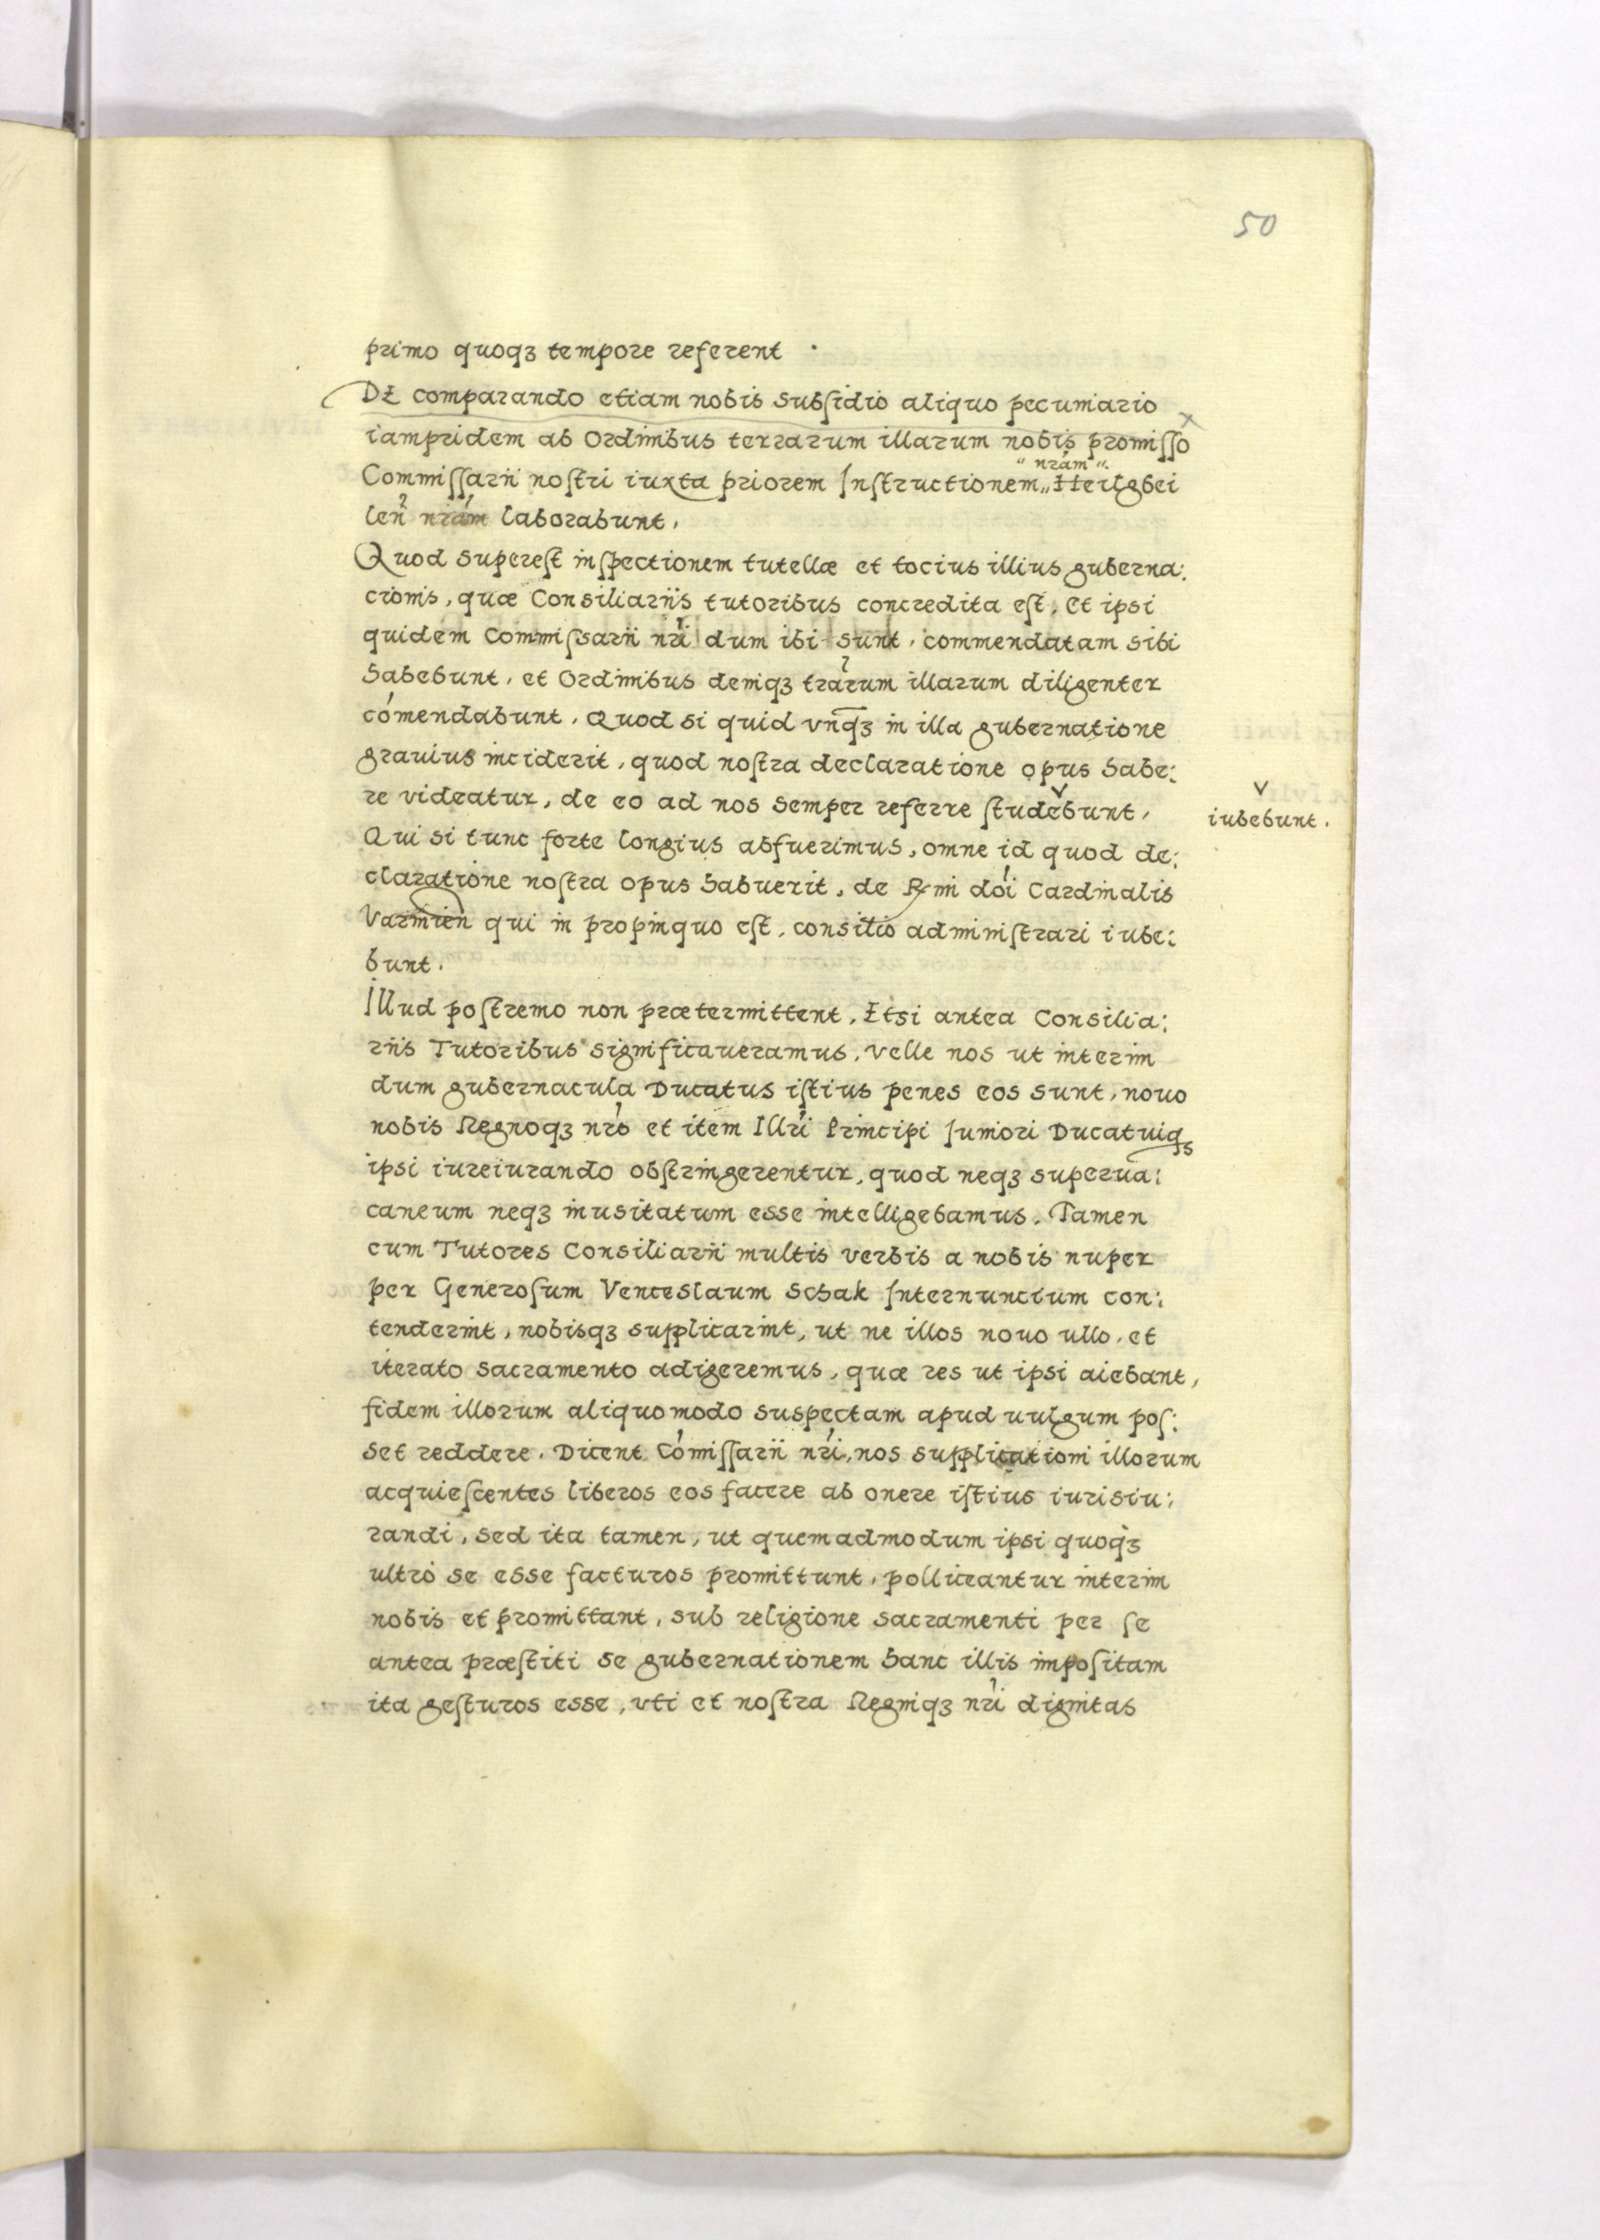 50
primo quoqꝫ tempore referent .
DE comparando etiam nobis subſidio aliquo pecuniario
iampridem ab Ordinibus terrarum illarum nobis promiſſo
" nrám ".
Commiſſarii noſtri iuxta priorem Inſtructionem „ Heilſbei
len̉ nrám laborabunt.
Quod supereſt inſpectionem tutellæ et tocius illius guberna:
cionis, quæ Consiliariis tutoribus concredita eſt, Et ipsi
quidem Commiſsarii nr̃i dum ibi sunt, commendatam sibi
habebunt, et Ordinibus deniqꝫ tr̃arum illarum diligenter
cómendabunt. Quod si quid vnq̄ꝫ in illa gubernatione
grauius inciderit, quod noſtra declaratione opus habe:
re videatur, de eo ad nos semper referre ſtudebunt,
v
iubebunt.
Qui si tunc forte longius abfuerimus, omne id quod de:
claratione noſtra opus habuerit, de R̃mi dói Cardinalis
Varmien̄ qui in propinquo eſt, consilio adminiſtrari iube:
bunt.
Illud poſtremo non prætermittent, Etsi antea Consilia:
riis Tutoribus significaueramus, velle nos ut interim
dum gubernacula Ducatus iſtius penes eos sunt, nouo
nobis Regnoqꝫ nr̃o et item Illri̾ Principi Iuniori Ducatuiqꝫ
ipsi iureiurando obſtringerentur, quod neqꝫ superua:
caneum neqꝫ inusitatum esse intelligebamus. Tamen
cum Tutores Consiliarii multis verbis a nobis nuper
per Generoſum Venceslaum Schak Internuncium con:
tenderint, nobisqꝫ supplicarint, ut ne illos nouo ullo, et
iterato sacramento adigeremus, quæ res ut ipsi aiebant,
fidem illorum aliquomodo suspectam apud uulgum poſ:
set reddere. Dicent Cómiſſarii nr̃i, nos supplicationi illorum
acquieſcentes liberos eos facere ab onere iſtius iurisiu:
randi, sed ita tamen, ut quemadmodum ipsi quoq̀ꝫ
ultrò se esse facturos promittunt, polliceantur interim
nobis et promittant, sub religione sacramenti per ſe
antea præſtiti se gubernationem hanc illis impoſitam
ita geſturos esse, vti et noſtra Regniqꝫ nr̃i dignitas